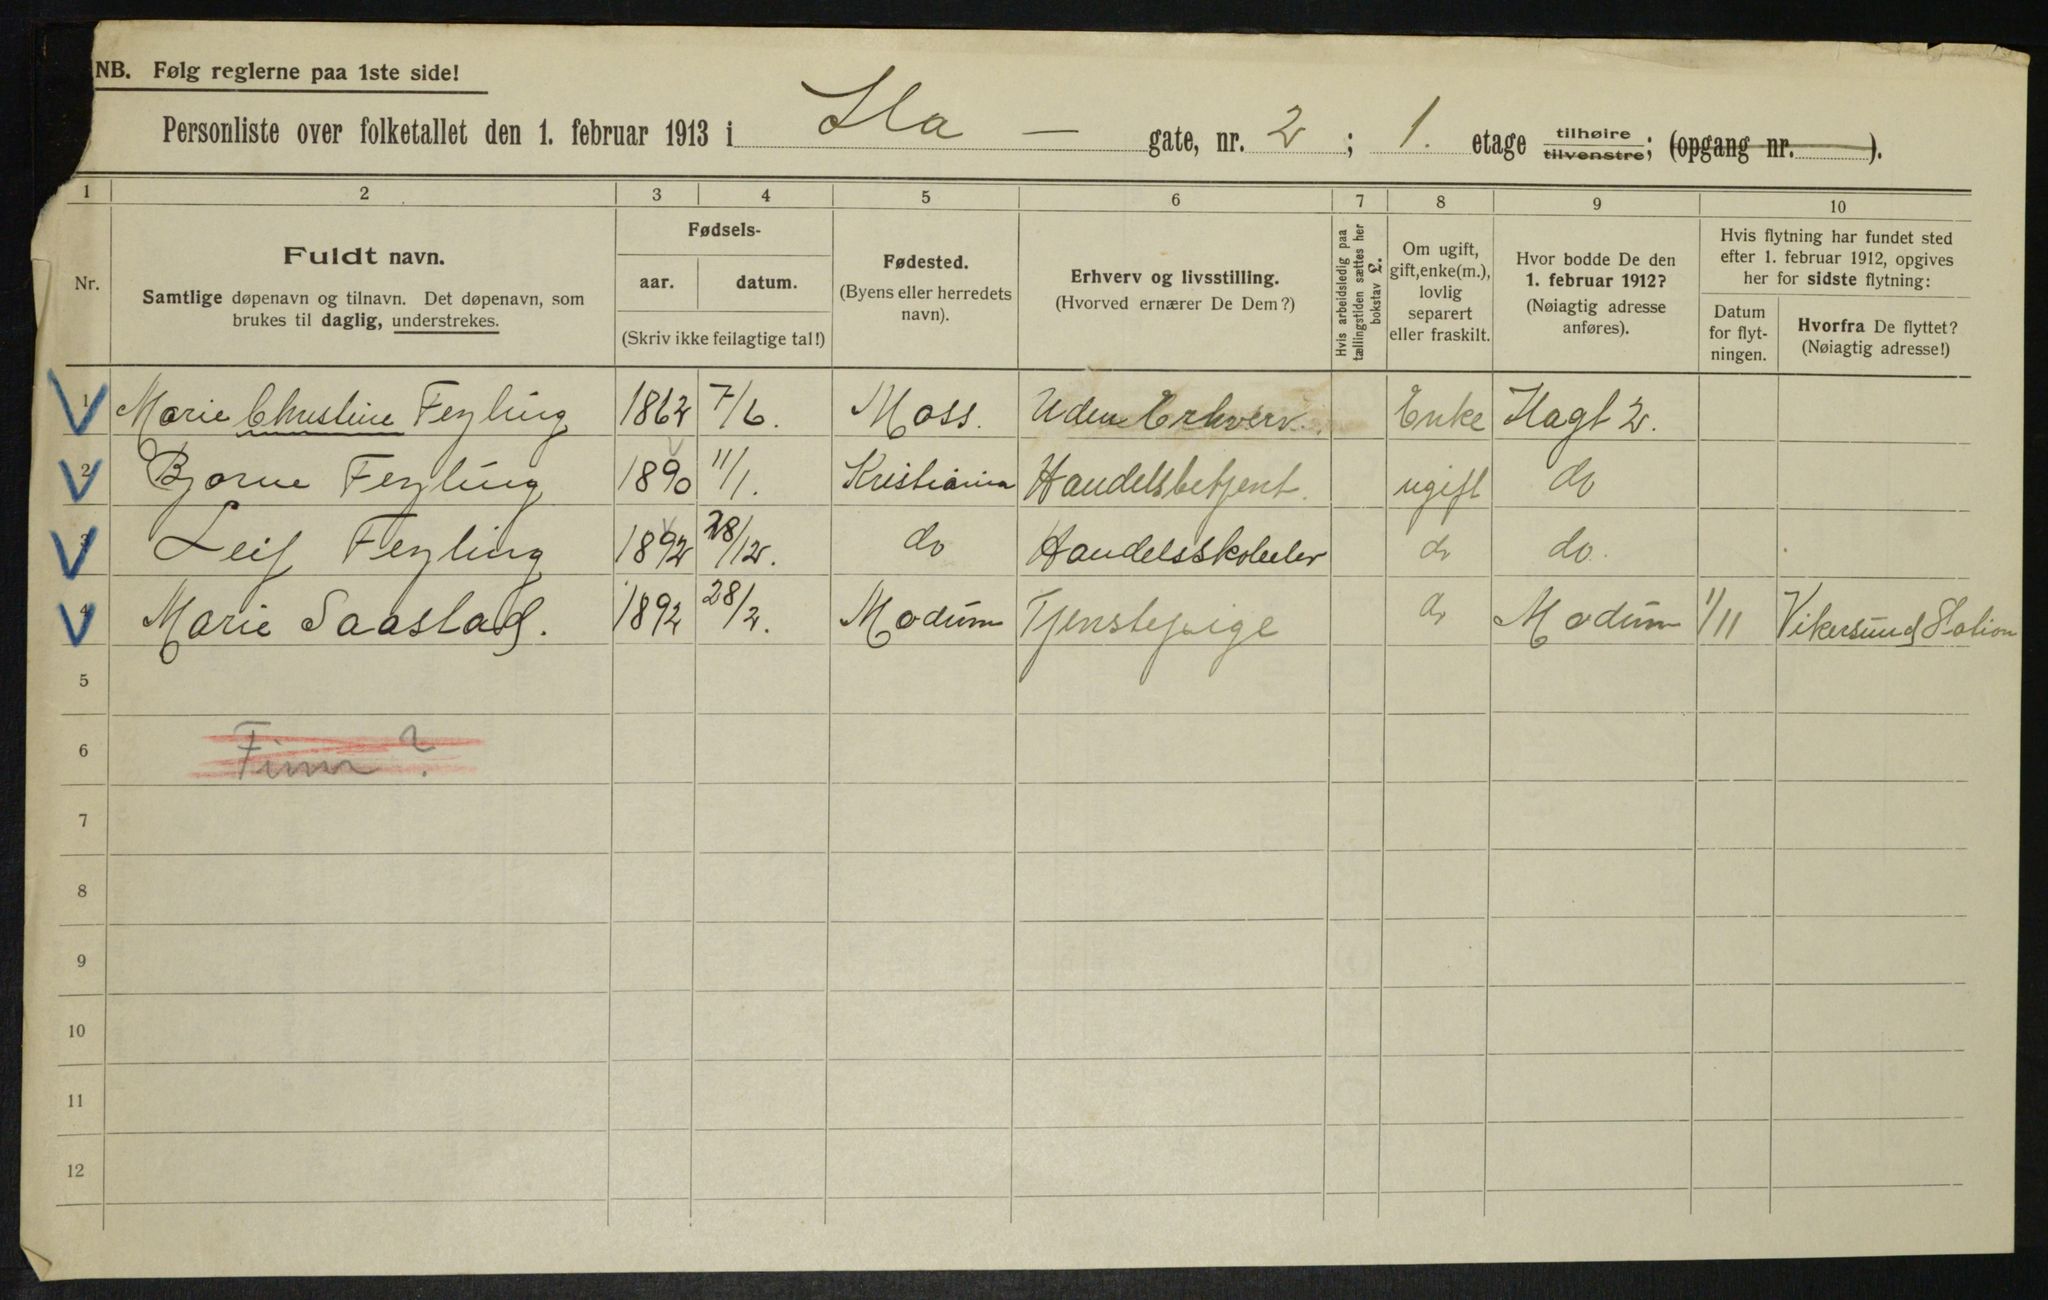 NB. Følg reglerne paa 1ste side!
Personliste over folketallet den 1. februar 1913 i Ila — gate, nr. 2 ; 1. etage tilhøire tilvenstre; (opgang nr. ).
1 2 3 4 5 6 7 8 9 10
Nr.
Fuldt navn.
Samtlige døpenavn og tilnavn. Det døpenavn, som
brukes til daglig, understrekes.
Fødsels-
aar. datum.
(Skriv ikke feilagtige tal!)
Fødested.
(Byens eller herredets
navn).
Erhverv og livsstilling.
(Hvorved ernærer De Dem?)
Hvis arbeidsledig paa
tællingstiden sættes her
bokstav L.
Om ugift,
gift, enke(m.),
lovlig
separert
eller fraskilt.
Hvor bodde De den
1. februar 1912?
(Nøiagtig adresse
anføres).
Hvis flytning har fundet sted
efter 1. februar 1912, opgives
her for sidste flytning:
Datum
for flyt-
ningen.
Hvorfra De flyttet?
(Nøiagtig adresse!)
1 Marie Christine Feyling 1862 7/6. Moss. Uden Erhverv. Enke Ilagt 2.
2 Bjarne Feyling 1890 11/1. Kristiania Handelsbetjent. ugift do
3 Leif Feyling 1892 28/12. do Handelsskoleelev do do.
4 Marie Saastad. 1892 28/2. Modum Tjenstepige do Modum 1/11 Vikersund Station
5
6 Finn ?
7
8
9
10
11
12